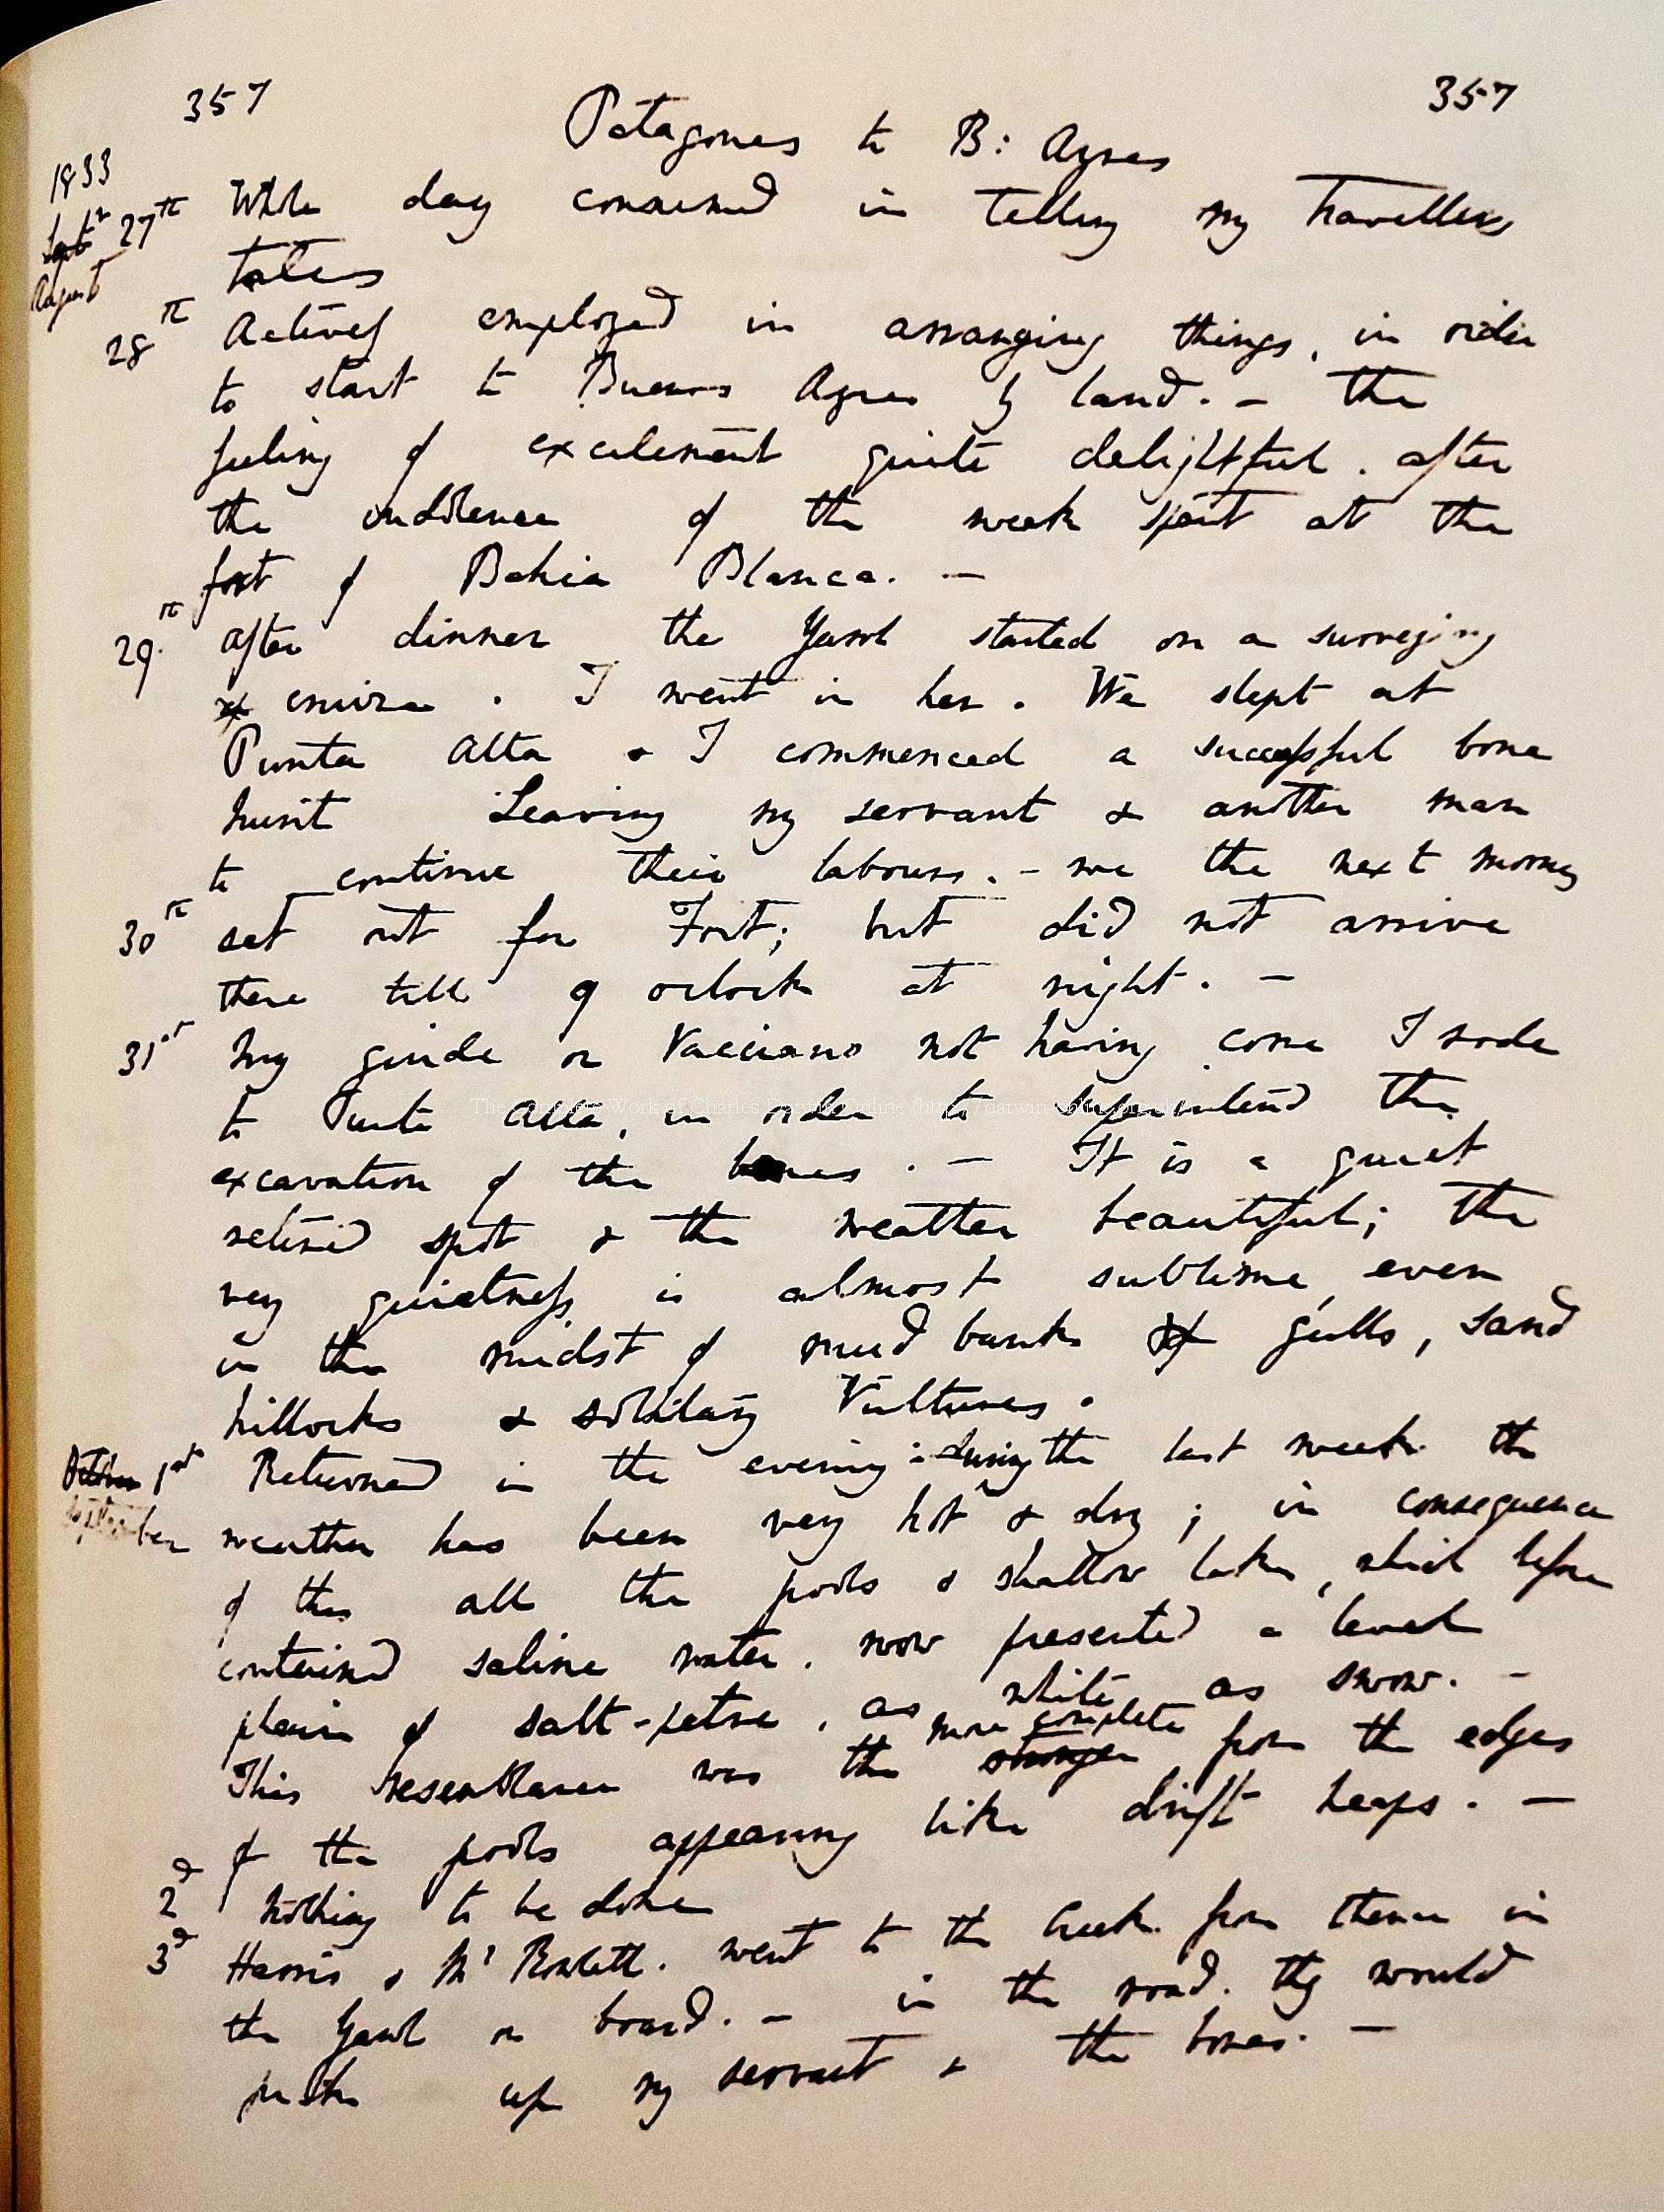 357 Patagones to B: Ayres 357
1833
Sept^r 27th Whole day consumed in telling my travellers
August tales
28th Actively employed in arranging things, in order
to start to Buenos Ayres by land. — The
feeling of excitement quite delightful. after
the indolence of the week spent at the
fort of Bahia Blanca. —
29th After dinner the Yawl started on a surveying
cruize. I went in her. We slept at
Punta Alta & I commenced a successful bone
hunt Leaving my servant & another man
to continue their labours. — we the next morning
30th set out for Fort; but did not arrive
there till 9 oclock at night. —
31st My guide or Vacciano not having come I rode
to Punta Alta, in order to superintend the
excavation of the bones. — It is a quiet
retired spot & the weather beautiful; the
very quietness is almost sublime even
in the midst of mud banks & gulls, sand
hillocks & solitary Vultures.
October 1st Returned in the evening: during the last week the
September weather has been very hot & dry; in consequence
of this all the pools & shallow lakes, which before
contained saline water, now presented a level
plain of salt-petre, as white as snow. —
more complete
This resemblance was the stronger from the edges
of the pools appearing like drift heaps. —
2d Nothing to be done
3d Harris & Mr Rowlett. went to the Creek. from thence in
the Yawl on board. — in the road. they would
pick up my servant & the bones. —